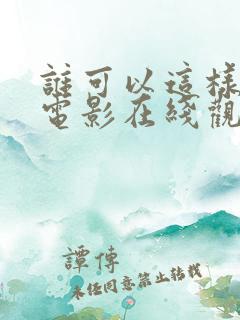 誰可以這樣
電影在綫觀
譚傳
未任同意禁止轉載